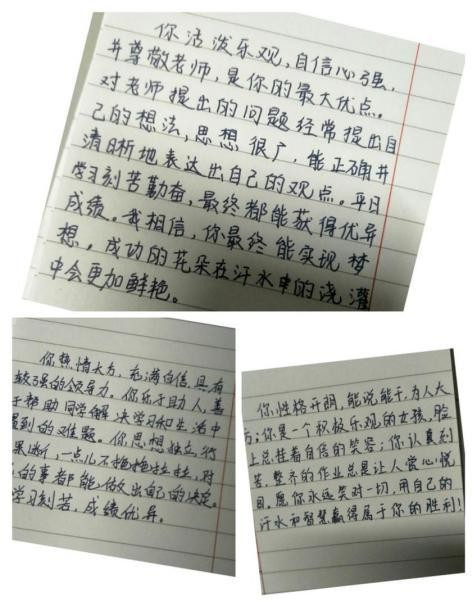 你活泼乐观，自信心强，
并尊敬老师，是你的最大优点。
对老师提出的问题经常提出自
己的想法，思想很广，能正确并
清晰地表达出自己的观点。平日
学习刻苦勤奋，最终都能获得优异
成绩。我相信，你最终能实现梦
想。成功的花朵在汗水中的浇灌
中会更加鲜艳。
你热情大方，充满自信，具有
较强的领导力，你乐于助人，善
于帮助同学解决学习和生活中
遇到的难题。你思想独立，行
果断，一点儿不拖拖拉拉，对
的事都能做出自己的决定。
学习刻苦，成绩优异。
你，性格开朗，能说能干，为人大
方；你是一个积极乐观的女孩，脸
上总挂着自信的笑容；你认真刻
苦，整齐的作业总是让人赏心悦
目。愿你永远笑对一切，用自己的
汗水和智慧赢得属于你的胜利！